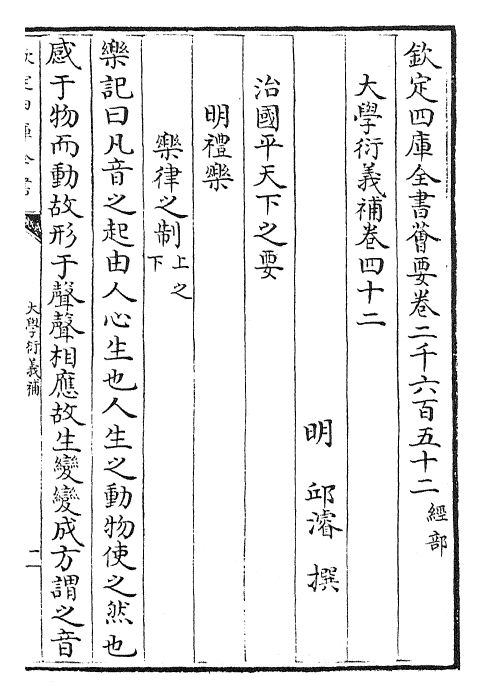 欽定四庫全書薈要卷二千六百五十二 經部
大學衍義補卷四十二
明 邱濬 撰
治國平天下之要
明禮樂
樂律之制 上之下
樂記曰凡音之起由人心生也人生之動物使之然也
感于物而動故形于聲聲相應故生變變成方謂之音
大學衍義補